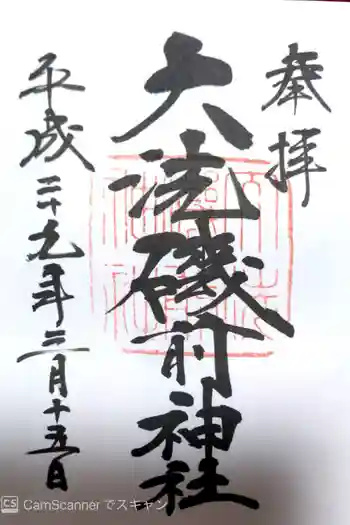 奉拝
大洗磯前神社
平成二十九年三月十五日
CS CamScanner でスキャン